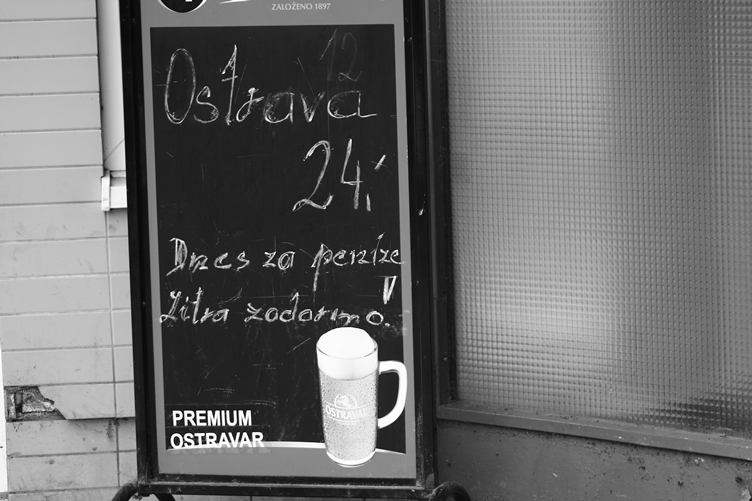 ZALOŽENO 1897
12
Ostrava
24,-
Dnes za peníze
Zítra zadarmo!
OSTRAVAR
PREMIUM
OSTRAVAR